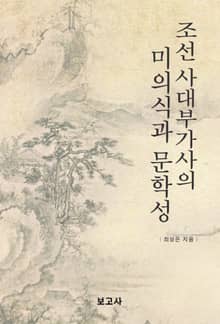 조선 사대부가사의
미의식과 문학성
| 최상은 지음 |
보고사